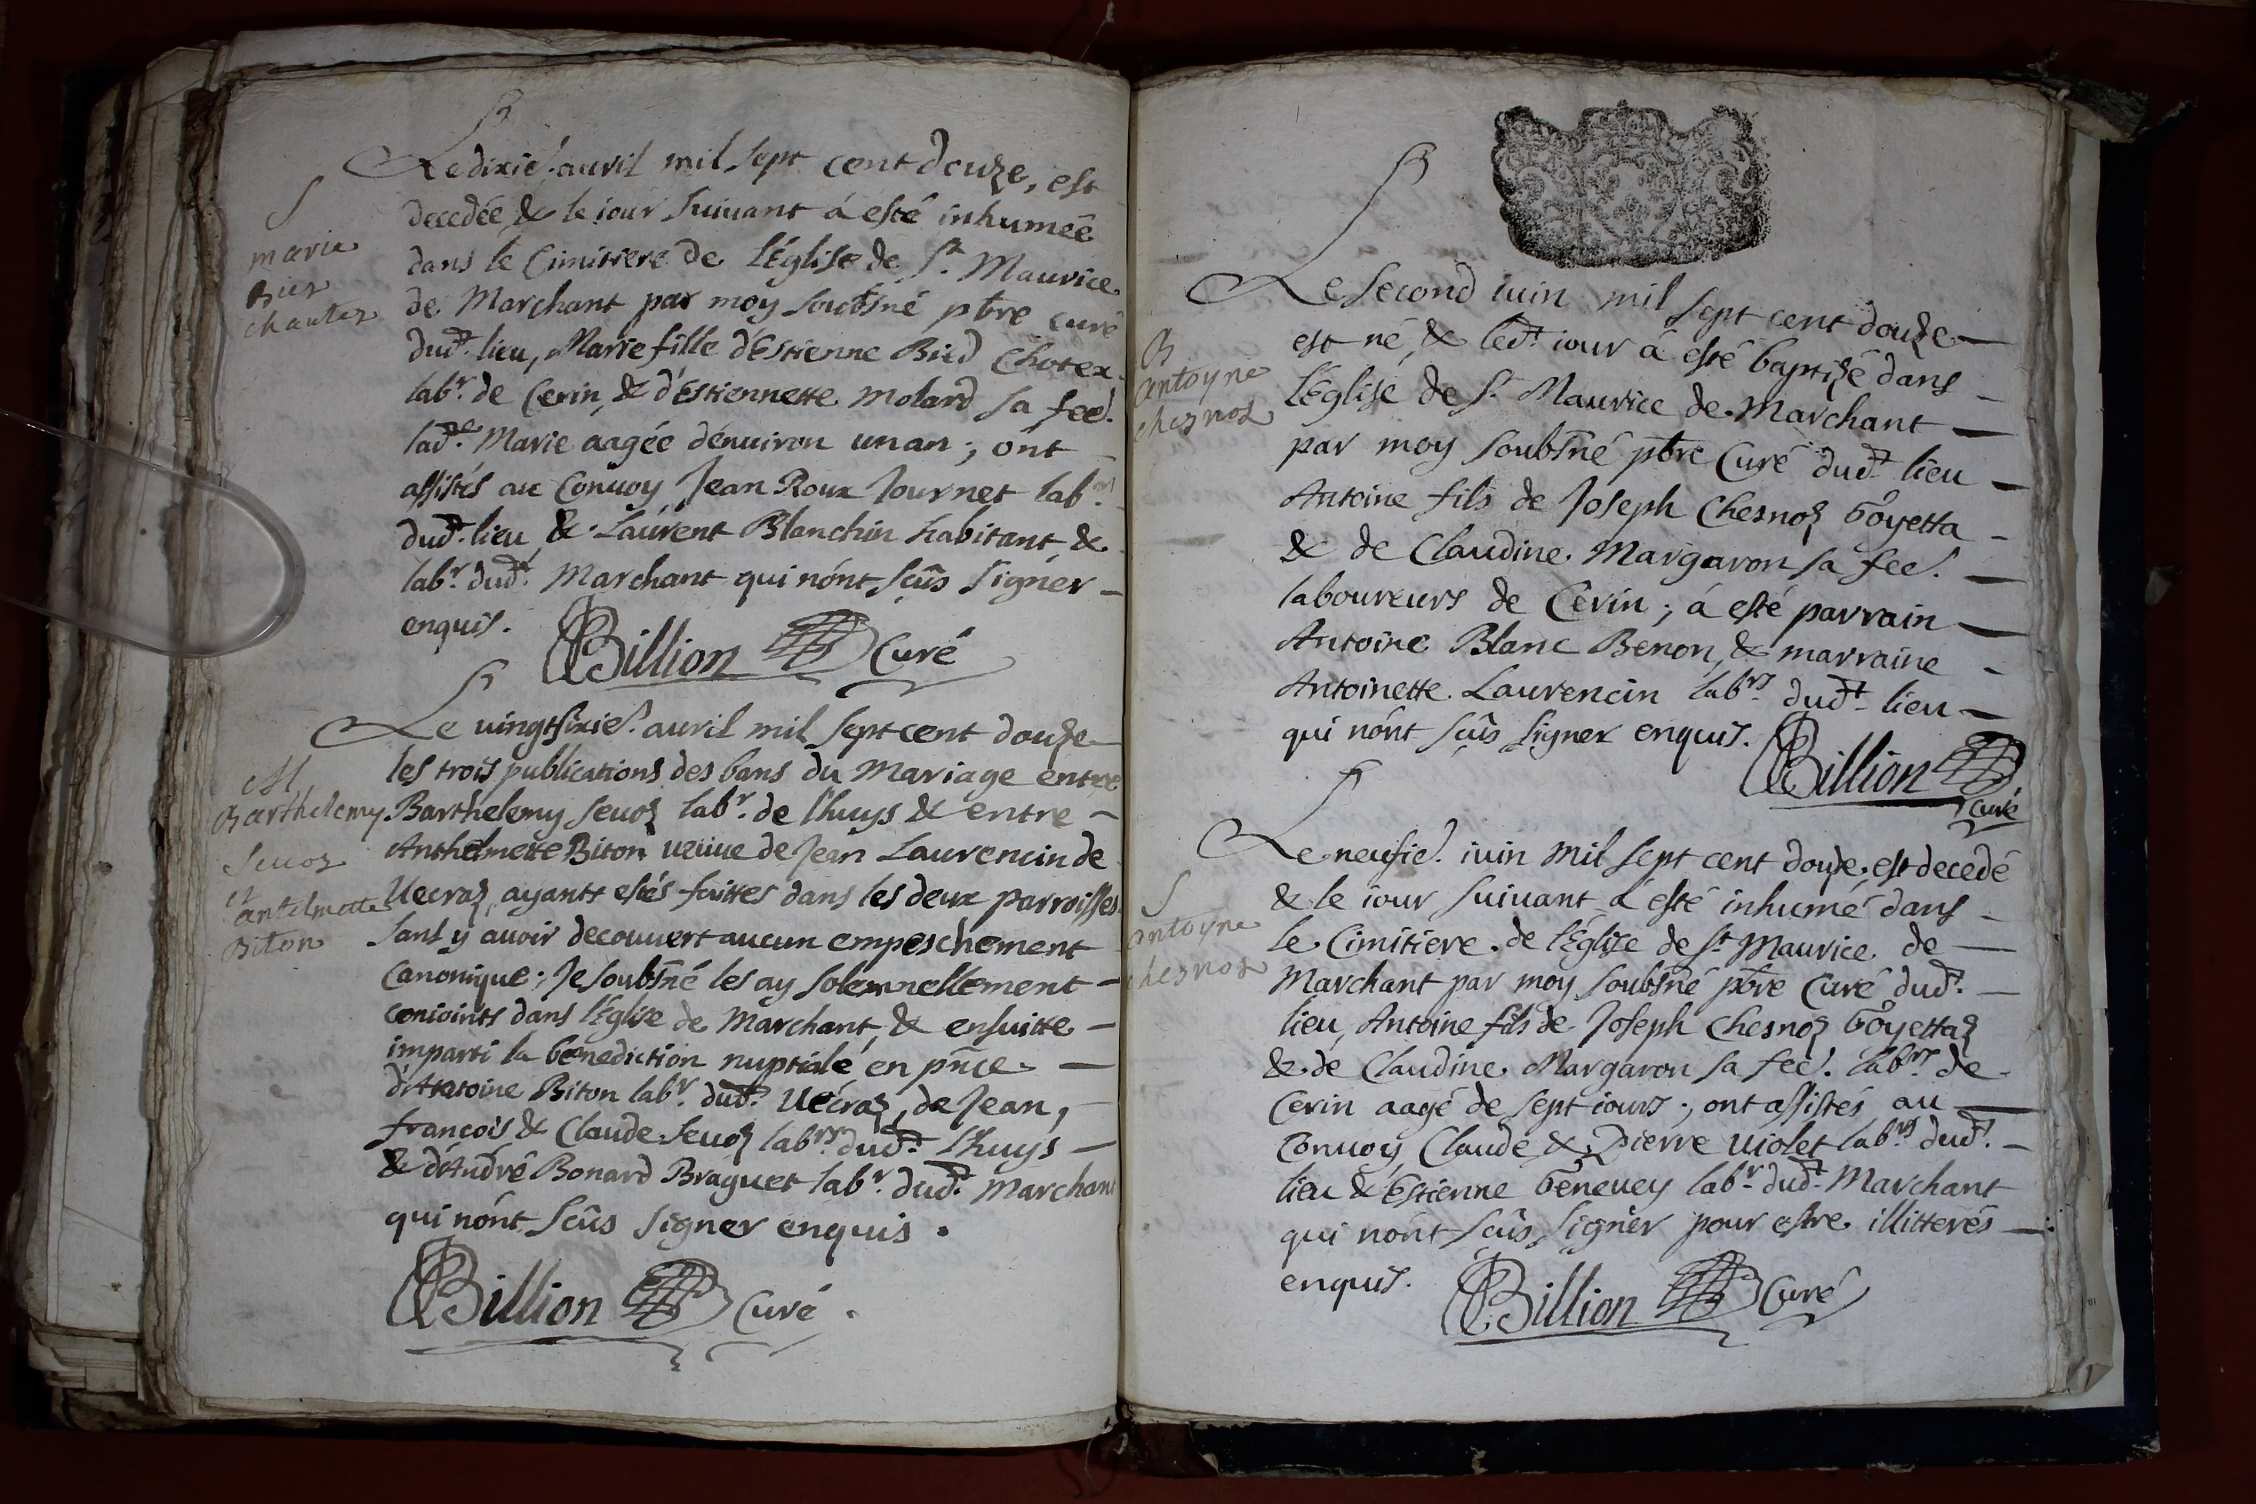 Le dixie. auril mil sept cent douze, est
decedée, & le iour suiuant á esté inhumée
dans le Cimitiere de l'Église de St. Maurice
de Marchant par moy soubsné pbre curé
dudt. lieu, Marie fille d'Estienne Bied Chotex
labr. de Cerin, & d'Estiennette Molard sa fee.
ladte. Marie aagée d'enuiron un an; ont
assistés au Conuoy Jean Roux Journet labr.
dudt. lieu, & Laurent Blanchin habitant, &
labr. dudt. Marchant qui n'ont sçûs signer
enquis.
Billion Curé
S
marie
Bies
chautez
Le uingtsixie. auril mil sept cent douze
les trois publications des bans du Mariage entre
Barthelemy seuoz labr. de lhuys & entre
Anthelmette Biton ueuue de Jean Laurencin de
Uecraz, ayants estés faittes dans les deux parroisses
sans y auoir decouuert aucun empeschement
Canonique; Je soubsné les ay solemnellement
conioints dans l'Eglise de Marchant, & ensuitte
imparti la benediction nuptiale en pnce
d'Antoine Biton labr. dudt. Uécraz, de Jean,
françois & Claude seuoz labrs. dudt. lhuys
& d'André Bonard Braguet labr. dudt. Marchant
qui n'ont sçûs signer enquis.
Billion Curé.
M
Barthelemy
Seuoz
et
antelmette
Biton
Le second iuin mil sept cent douze
est né, & ledt. iour á esté baptizé dans
l'Église de St. Maurice de Marchant
par moy soubsné pbre Curé dudt. lieu
Antoine fils de Joseph Chesnoz Goyetta
& de Claudine Margaron sa fee.
laboureurs de Cerin; á esté parrain
Antoine Blanc Benon, & marraine
Antoinette Laurencin labrs. dudt. lieu
qui n'ont sçûs signer enquis.
Billion
Curé
B
antoyne
chesnoz
Le neufie. iuin mil sept cent douze est decedé
& le iour suiuant á esté inhumé dans
le Cimitiere de l'Église de St. Maurice de
Marchant par moy soubsné pbre Curé dudt.
lieu, Antoine fils de Joseph Chesnoz Goyettaz
& de Claudine Margaron sa fee. labrs. de
Cerin aagé de sept iours; ont assistés au
Conuoy Claude & Pierre Uiolet labrs. dudt.
lieu & Estienne Geneuey labr. dudt. Marchant
qui n'ont sçûs signer pour estre illitterés
enquis.
Billion Curé
S
antoyne
chesnoz